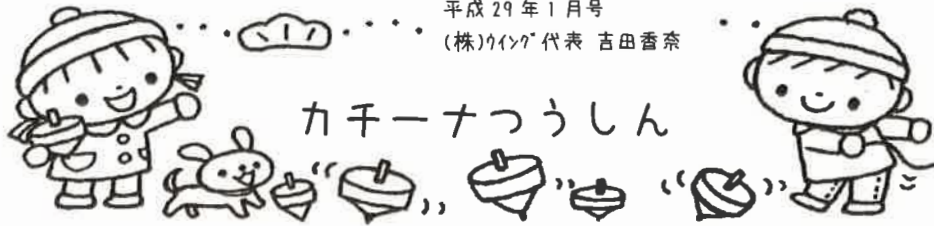 平成29年1月号
(株)ウイング代表 吉田香奈
カチーナつうしん